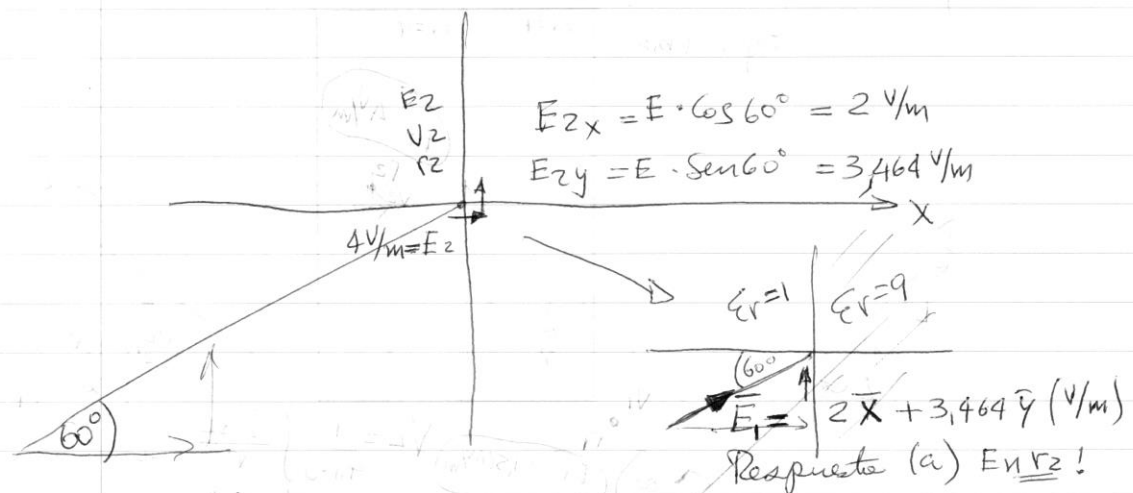 E2
V2
r2
E2x = E · Cos 60° = 2 V/m
E2y = E · Sen 60° = 3,464 V/m
X
4 V/m = E2
60°
εr=1 εr=9
60°
E̅1 = 2 X̅ + 3,464 y̅ (V/m)
Respuesta (a) En r2 !